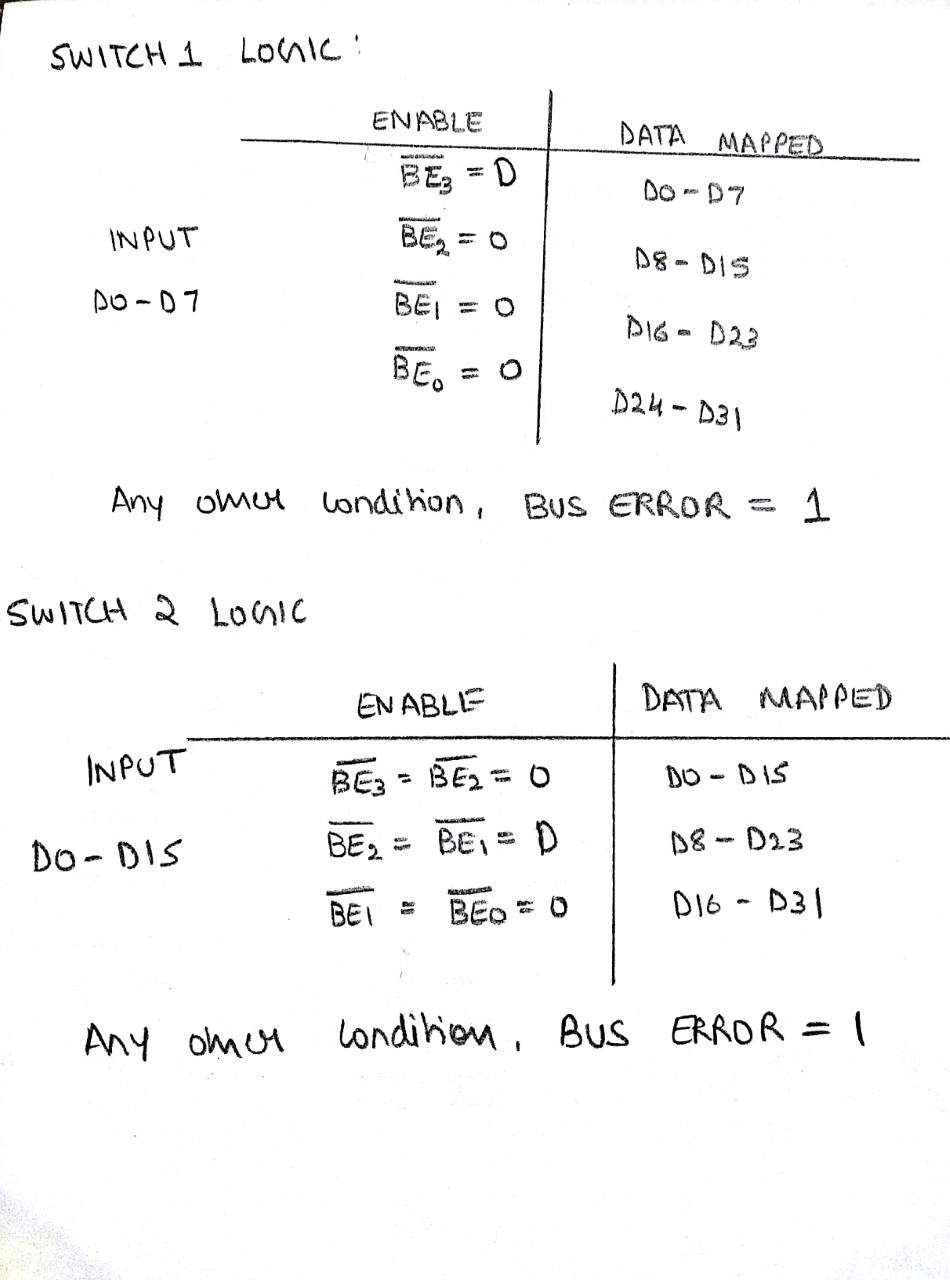 SWITCH 1 LOGIC :
ENABLE DATA MAPPED
B̅E̅₃ = 0 D0 - D7
INPUT B̅E̅₂ = 0 D8 - D15
D0 - D7 B̅E̅₁ = 0 D16 - D23
B̅E̅₀ = 0 D24 - D31
Any other condition, BUS ERROR = 1
SWITCH 2 LOGIC
ENABLE DATA MAPPED
INPUT B̅E̅₃ = B̅E̅₂ = 0 D0 - D15
D0 - D15 B̅E̅₂ = B̅E̅₁ = 0 D8 - D23
B̅E̅₁ = B̅E̅₀ = 0 D16 - D31
Any other condition, BUS ERROR = 1